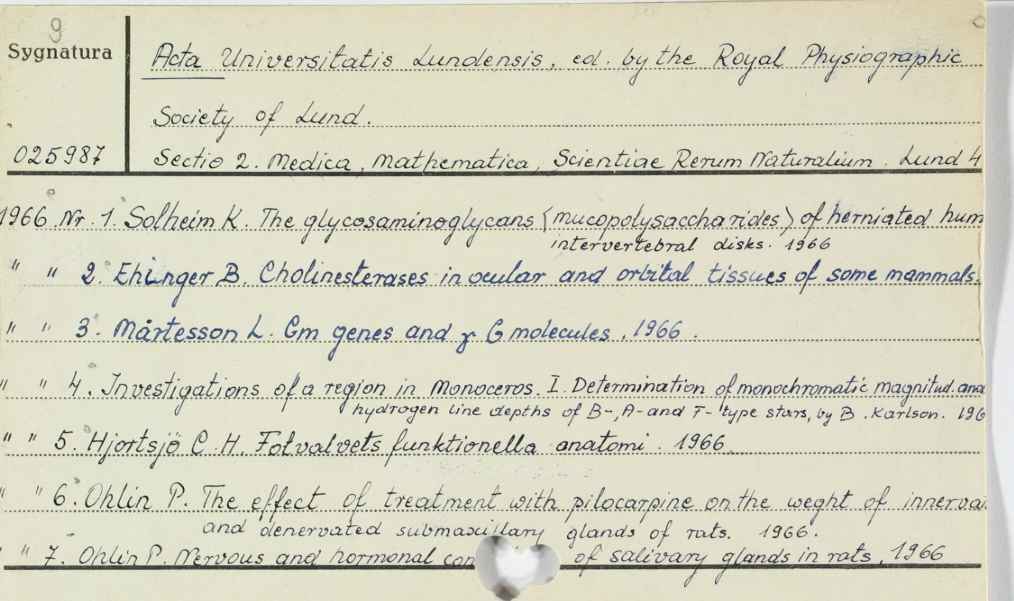 9
Sygnatura
Acta Universitatis Lundensis, ed. by the Royal Physiographic
Society of Lund.
025987
Sectio 2. Medica, Mathematica, Scientiae Rerum Naturalium. Lund
1966 Nr. 1. Solheim K. The glycosaminoglycans (mucopolysaccharides) of herniated hum
intervertebral disks. 1966
" " 2. Ehinger B. Cholinesterases in ocular and orbital tissues of some mammals.
" " 3. Mårtesson L. Gm genes and γ G molecules. 1966.
" " 4. Investigations of a region in Monoceros. I. Determination of monochromatic magnitud. and
hydrogen line depths of B-, A- and F- type stars, by B. Karlson. 196
" " 5. Hjortsjö C. H. Fotvalvets funktionella anatomi. 1966
" " 6. Ohlin P. The effect of treatment with pilocarpine on the weght of innerva
and denervated submaxillary glands of rats. 1966.
" " 7. Ohlin P. Nervous and hormonal con of salivary glands in rats. 1966